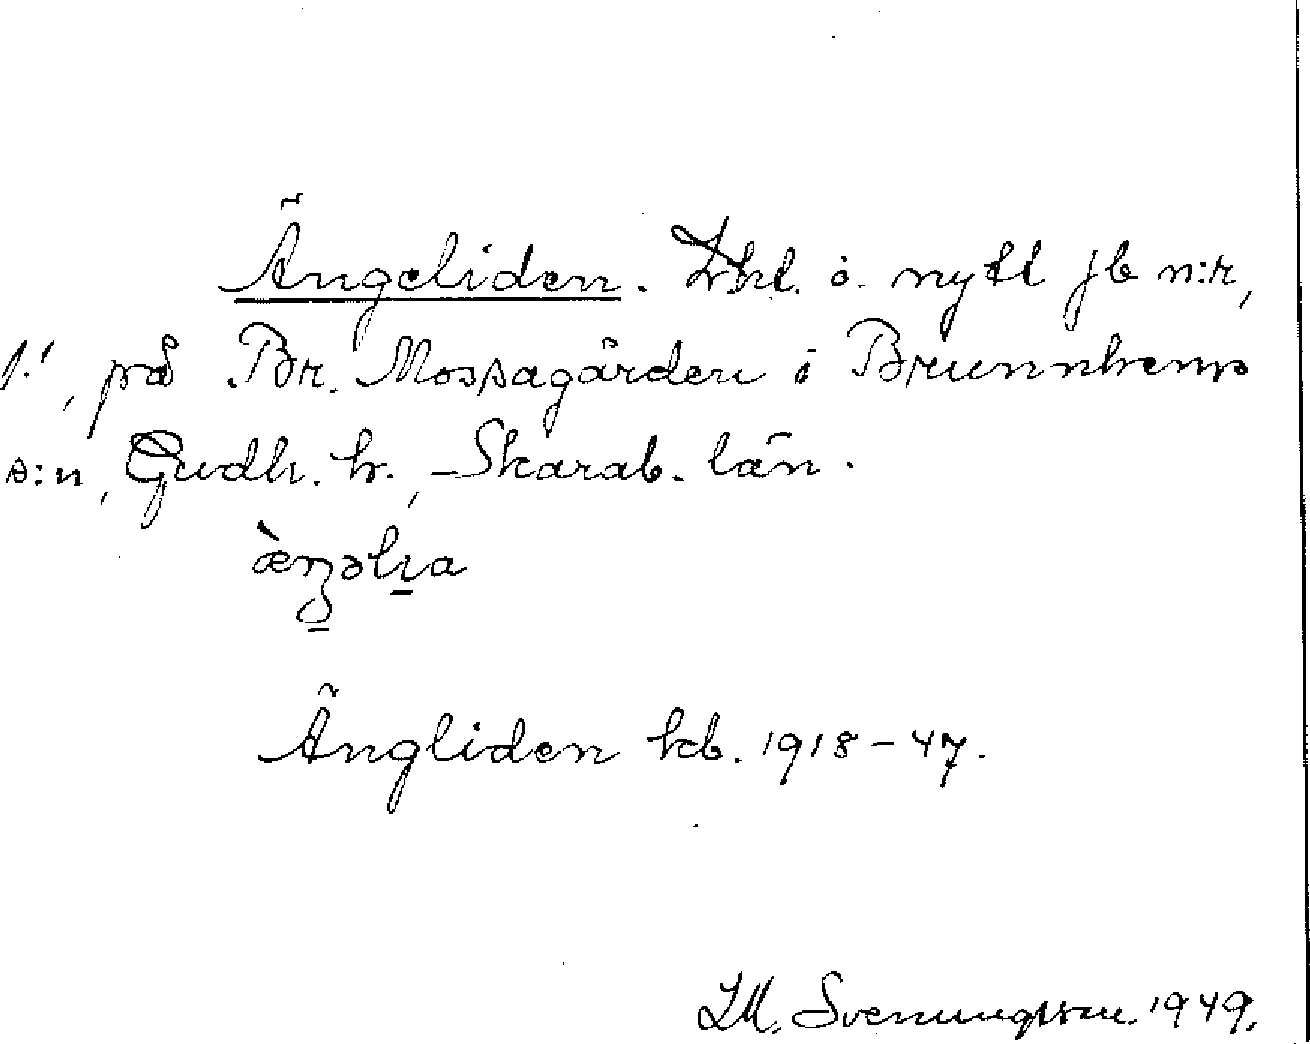 Ängeliden. Lht. o. nytt jb n:r,
1:1, på Br. Mossagården i Brunnhems
s:n, Gudh. h., Skarab. län.
Ängliden kb. 1918-47.
Svenungsson 1949.